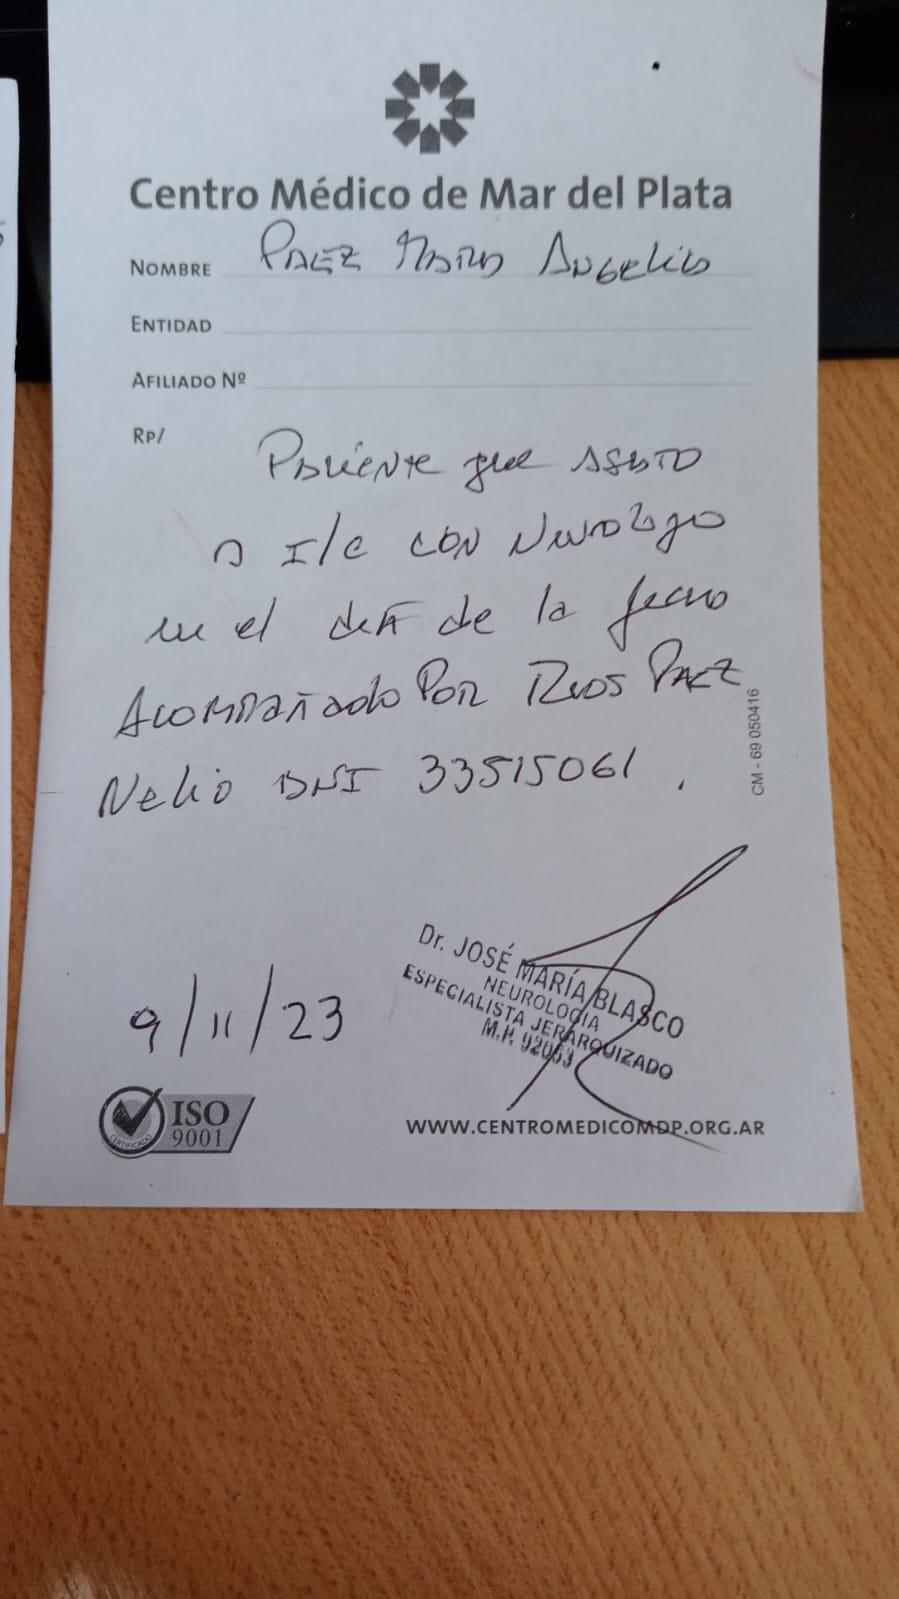 Centro Médico de Mar del Plata
NOMBRE PAEZ MARIA ANGELICA
ENTIDAD
AFILIADO Nº
RP/
PACIENTE que ASISTIO
A I/C CON Neurologo
en el diA de la fecha
ACOMPAñado POR RIOS PAEZ
Nelio DNI 33515061.
CM - 69 050416
9/11/23
Dr. JOSÉ MARÍA BLASCO
NEUROLOGIA
ESPECIALISTA JERARQUIZADO
M.P. 92053
CERTIFICADO
ISO
9001
WWW.CENTROMEDICOMDP.ORG.AR